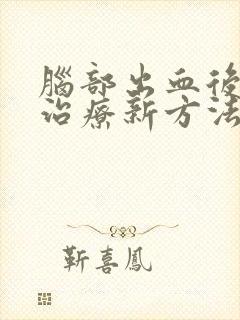 腦部出血後
治療新方法
靳喜鳳